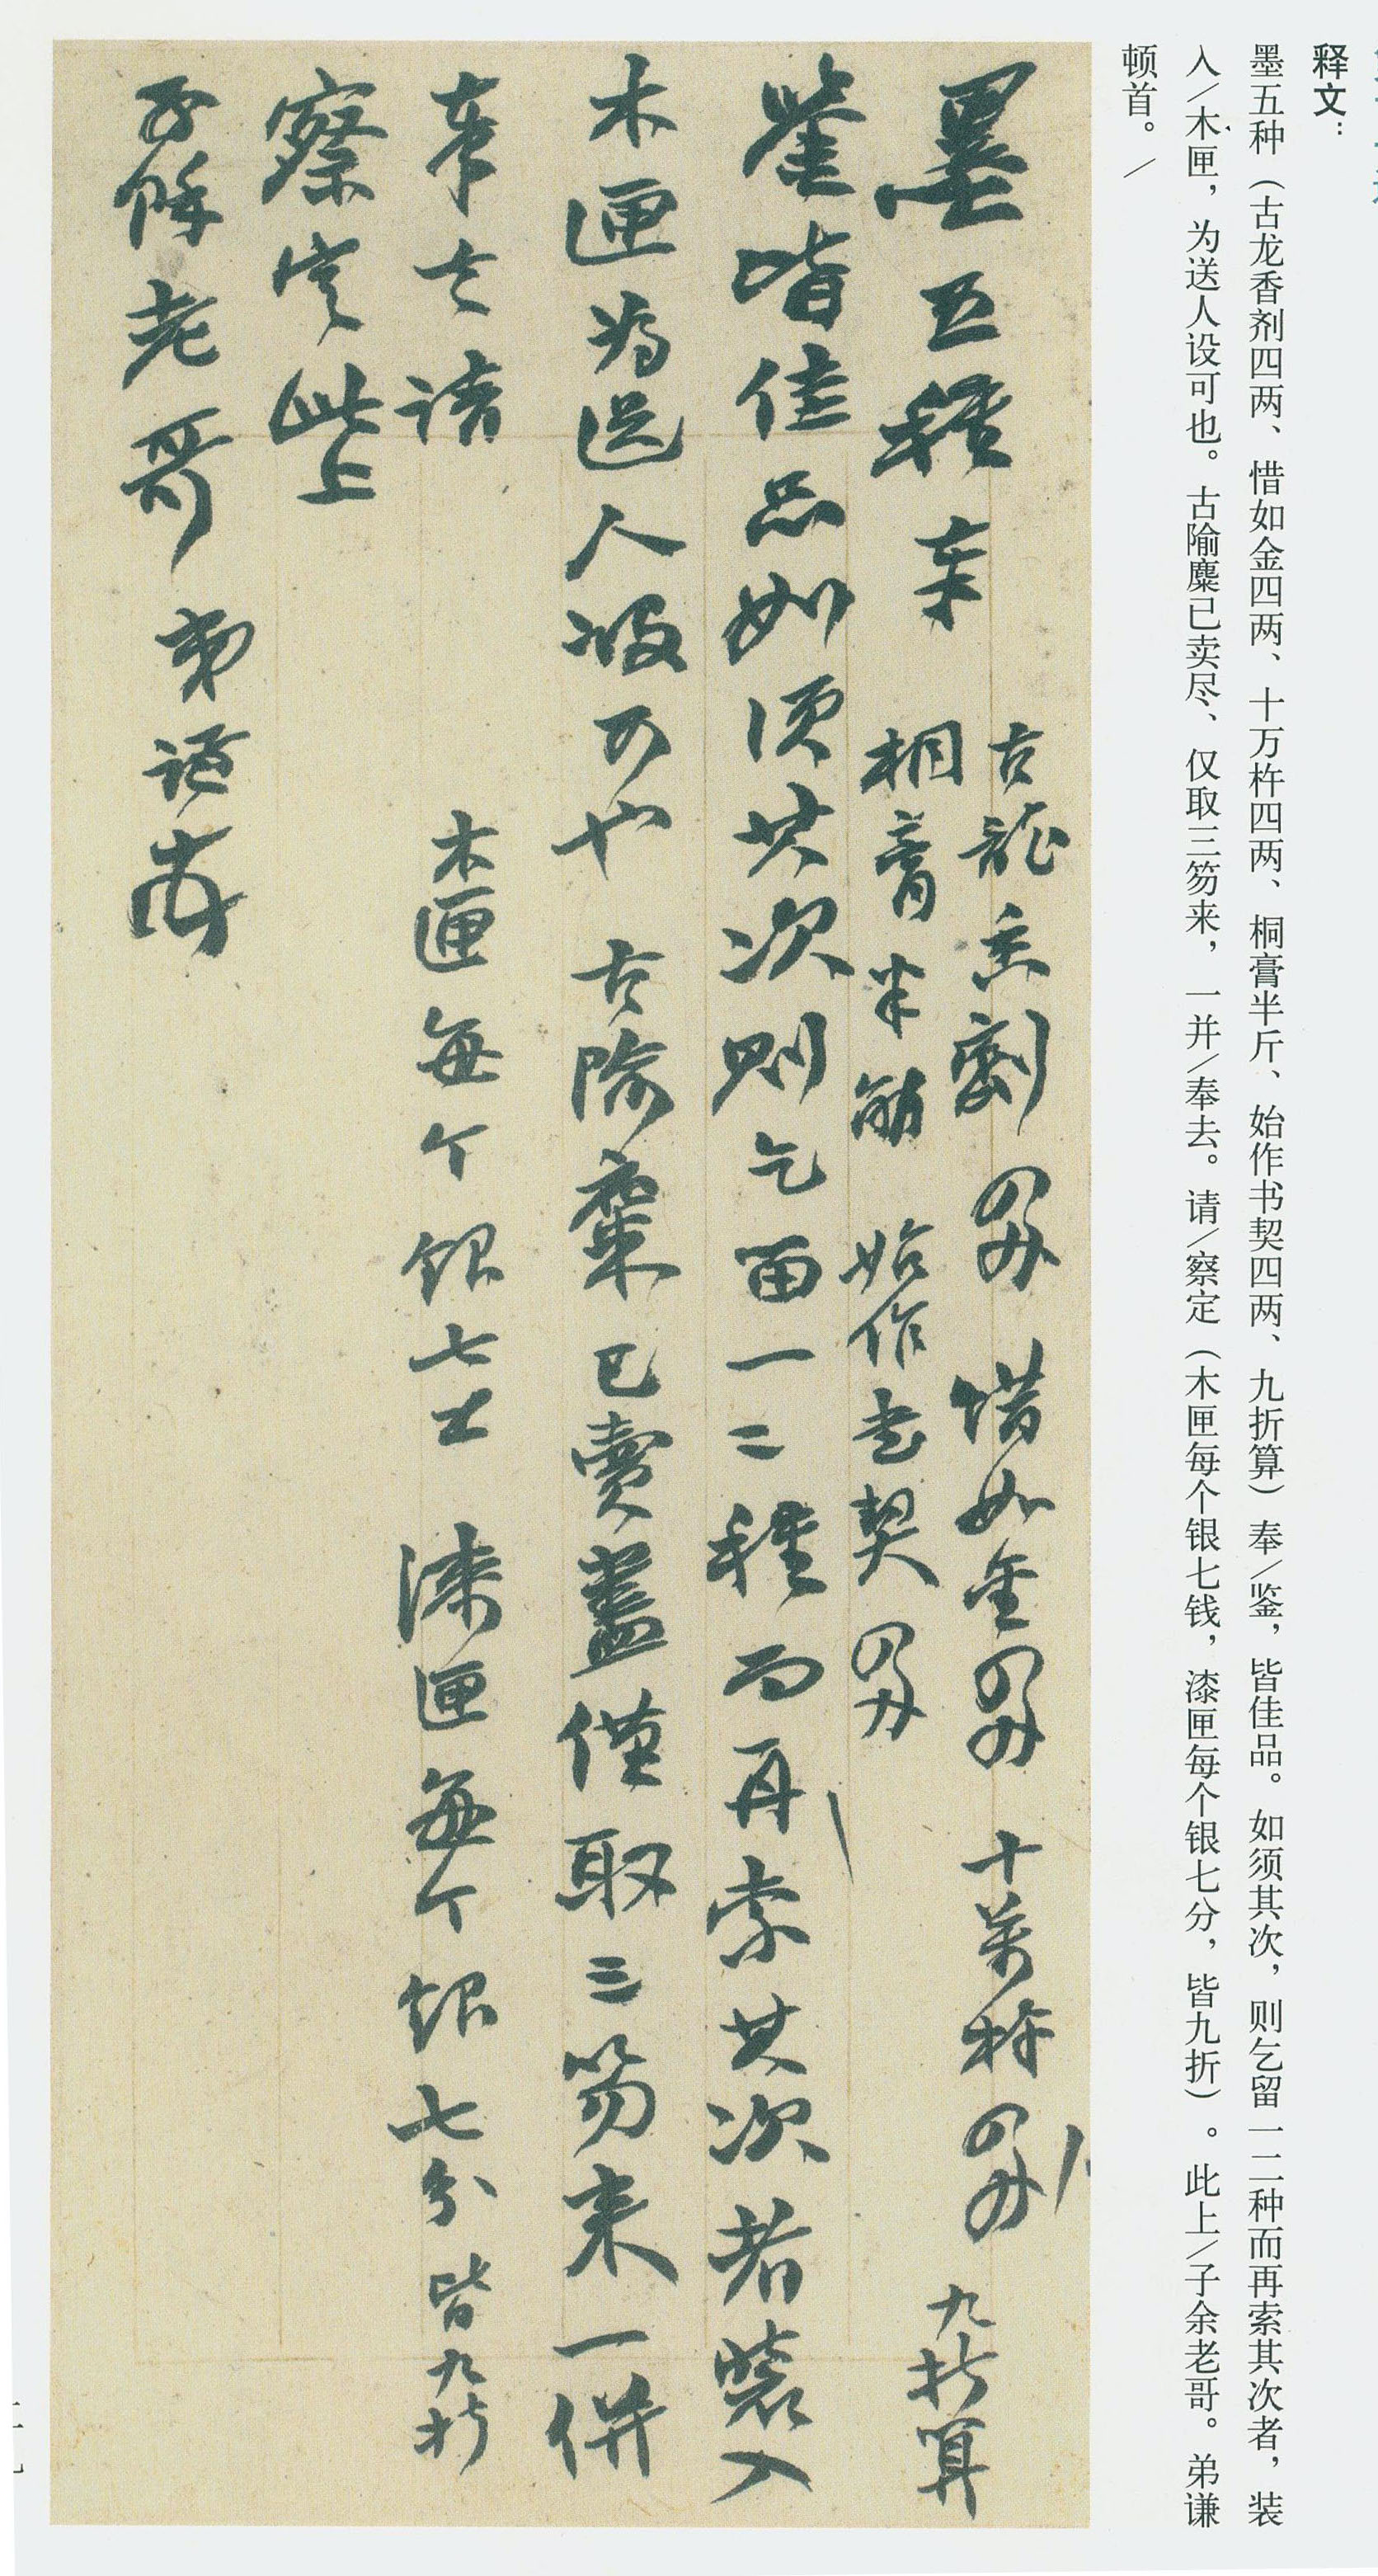 释文：
墨五种（古龙香剂四两、惜如金四两、十万杵四两、桐膏半斤、始作书契四两、九折算）奉/鉴，皆佳品。如须其次，则乞留一二种而再索其次者，装
入/木匣，为送人设可也。古隃麋已卖尽、仅取三笏来，一并/奉去。请/察定（木匣每个银七钱，漆匣每个银七分，皆九折）。此上/子余老哥。弟谦
顿首。/
墨五種奉
古龍香劑四两 惜如金四两 十萬杵四两
桐膏半觔 始作书契四两
九折算
鉴皆佳品如须其次则乞留一二種而再索其次者裝入
木匣为送人设可也 古隃糜已賣盡僅取三笏来一併
奉去请
木匣每个银七钱 漆匣每个银七分皆九折
察定此上
子餘老哥 弟谦顿首